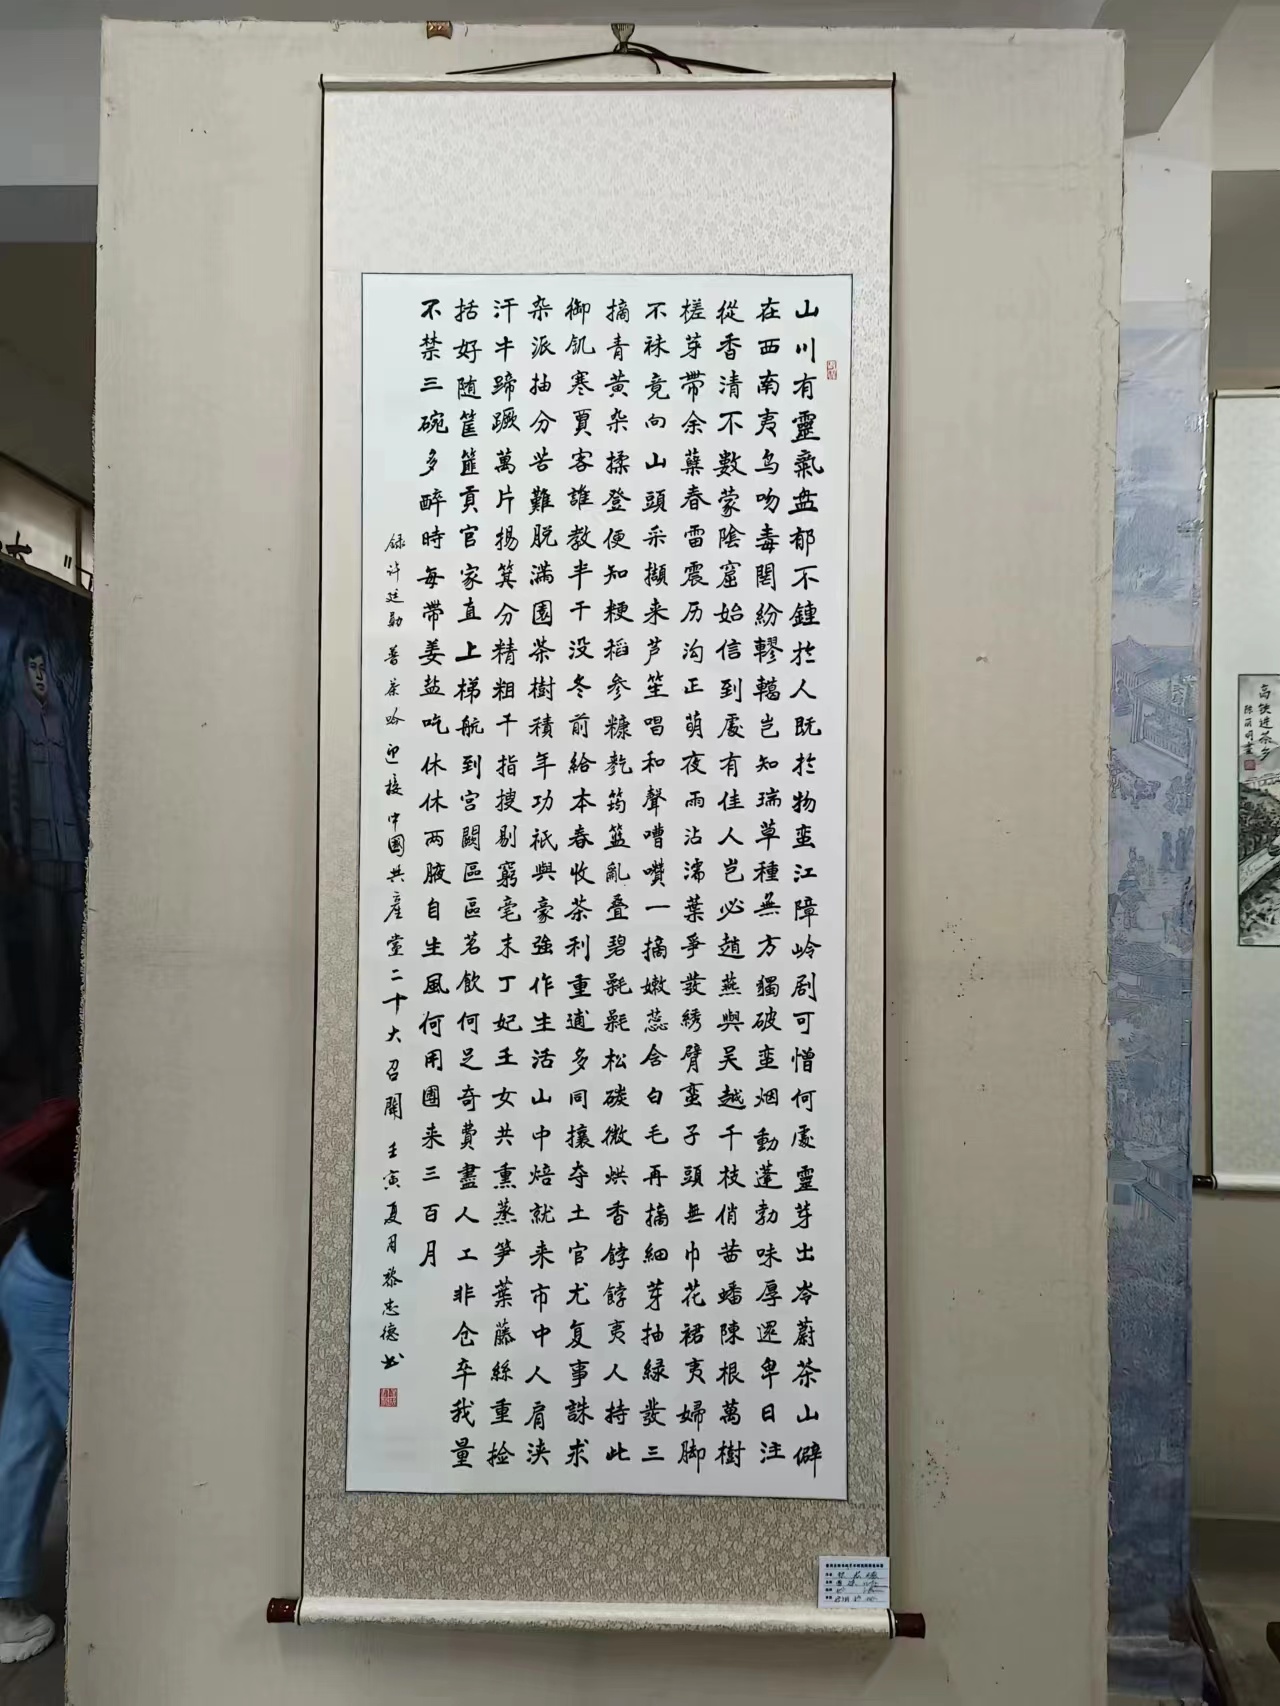 山川有靈氣盘郁不鍾於人既於物蛮江障岭剧可憎何處靈芽出岑蔚茶山僻
在西南夷鸟吻毒閟紛轇轕岂知瑞草種無方獨破蛮烟動蓬勃味厚還卑日注
從香清不數蒙陰窟始信到處有佳人岂必趙燕與吴越千枝俏茜蟠陳根萬樹
槎芽帶余蘖春雷震历沟正萌夜雨沾濡葉爭發綉臂蛮子頭無巾花裙夷婦脚
不袜竟向山頭采擷来芦笙唱和聲嘈囋一摘嫩蕊含白毛再摘細芽抽緑發三
摘青黄杂揉登便知粳稻参糠麧筠篮亂叠碧毿毿松碳微烘香饽饽夷人持此
御飢寒賈客誰教半干没冬前給本春收茶利重逋多同攘夺土官尤复事誅求
杂派抽分苦難脱满園茶樹積年功祇與豪強作生活山中焙就来市中人肩浃
汗牛蹄蹶萬片揚箕分精粗千指搜剔窮毫末丁妃壬女共熏蒸笋葉藤絲重捡
括好随筐篚貢官家直上梯航到宫闕區區茗飲何足奇費盡人工非仓卒我量
不禁三碗多醉時每帶姜盐吃休休两腋自生風何用團来三百月
録许廷勛普茶吟迎接中國共產党二十大召開壬寅夏月黎忠德书
高铁进茶乡